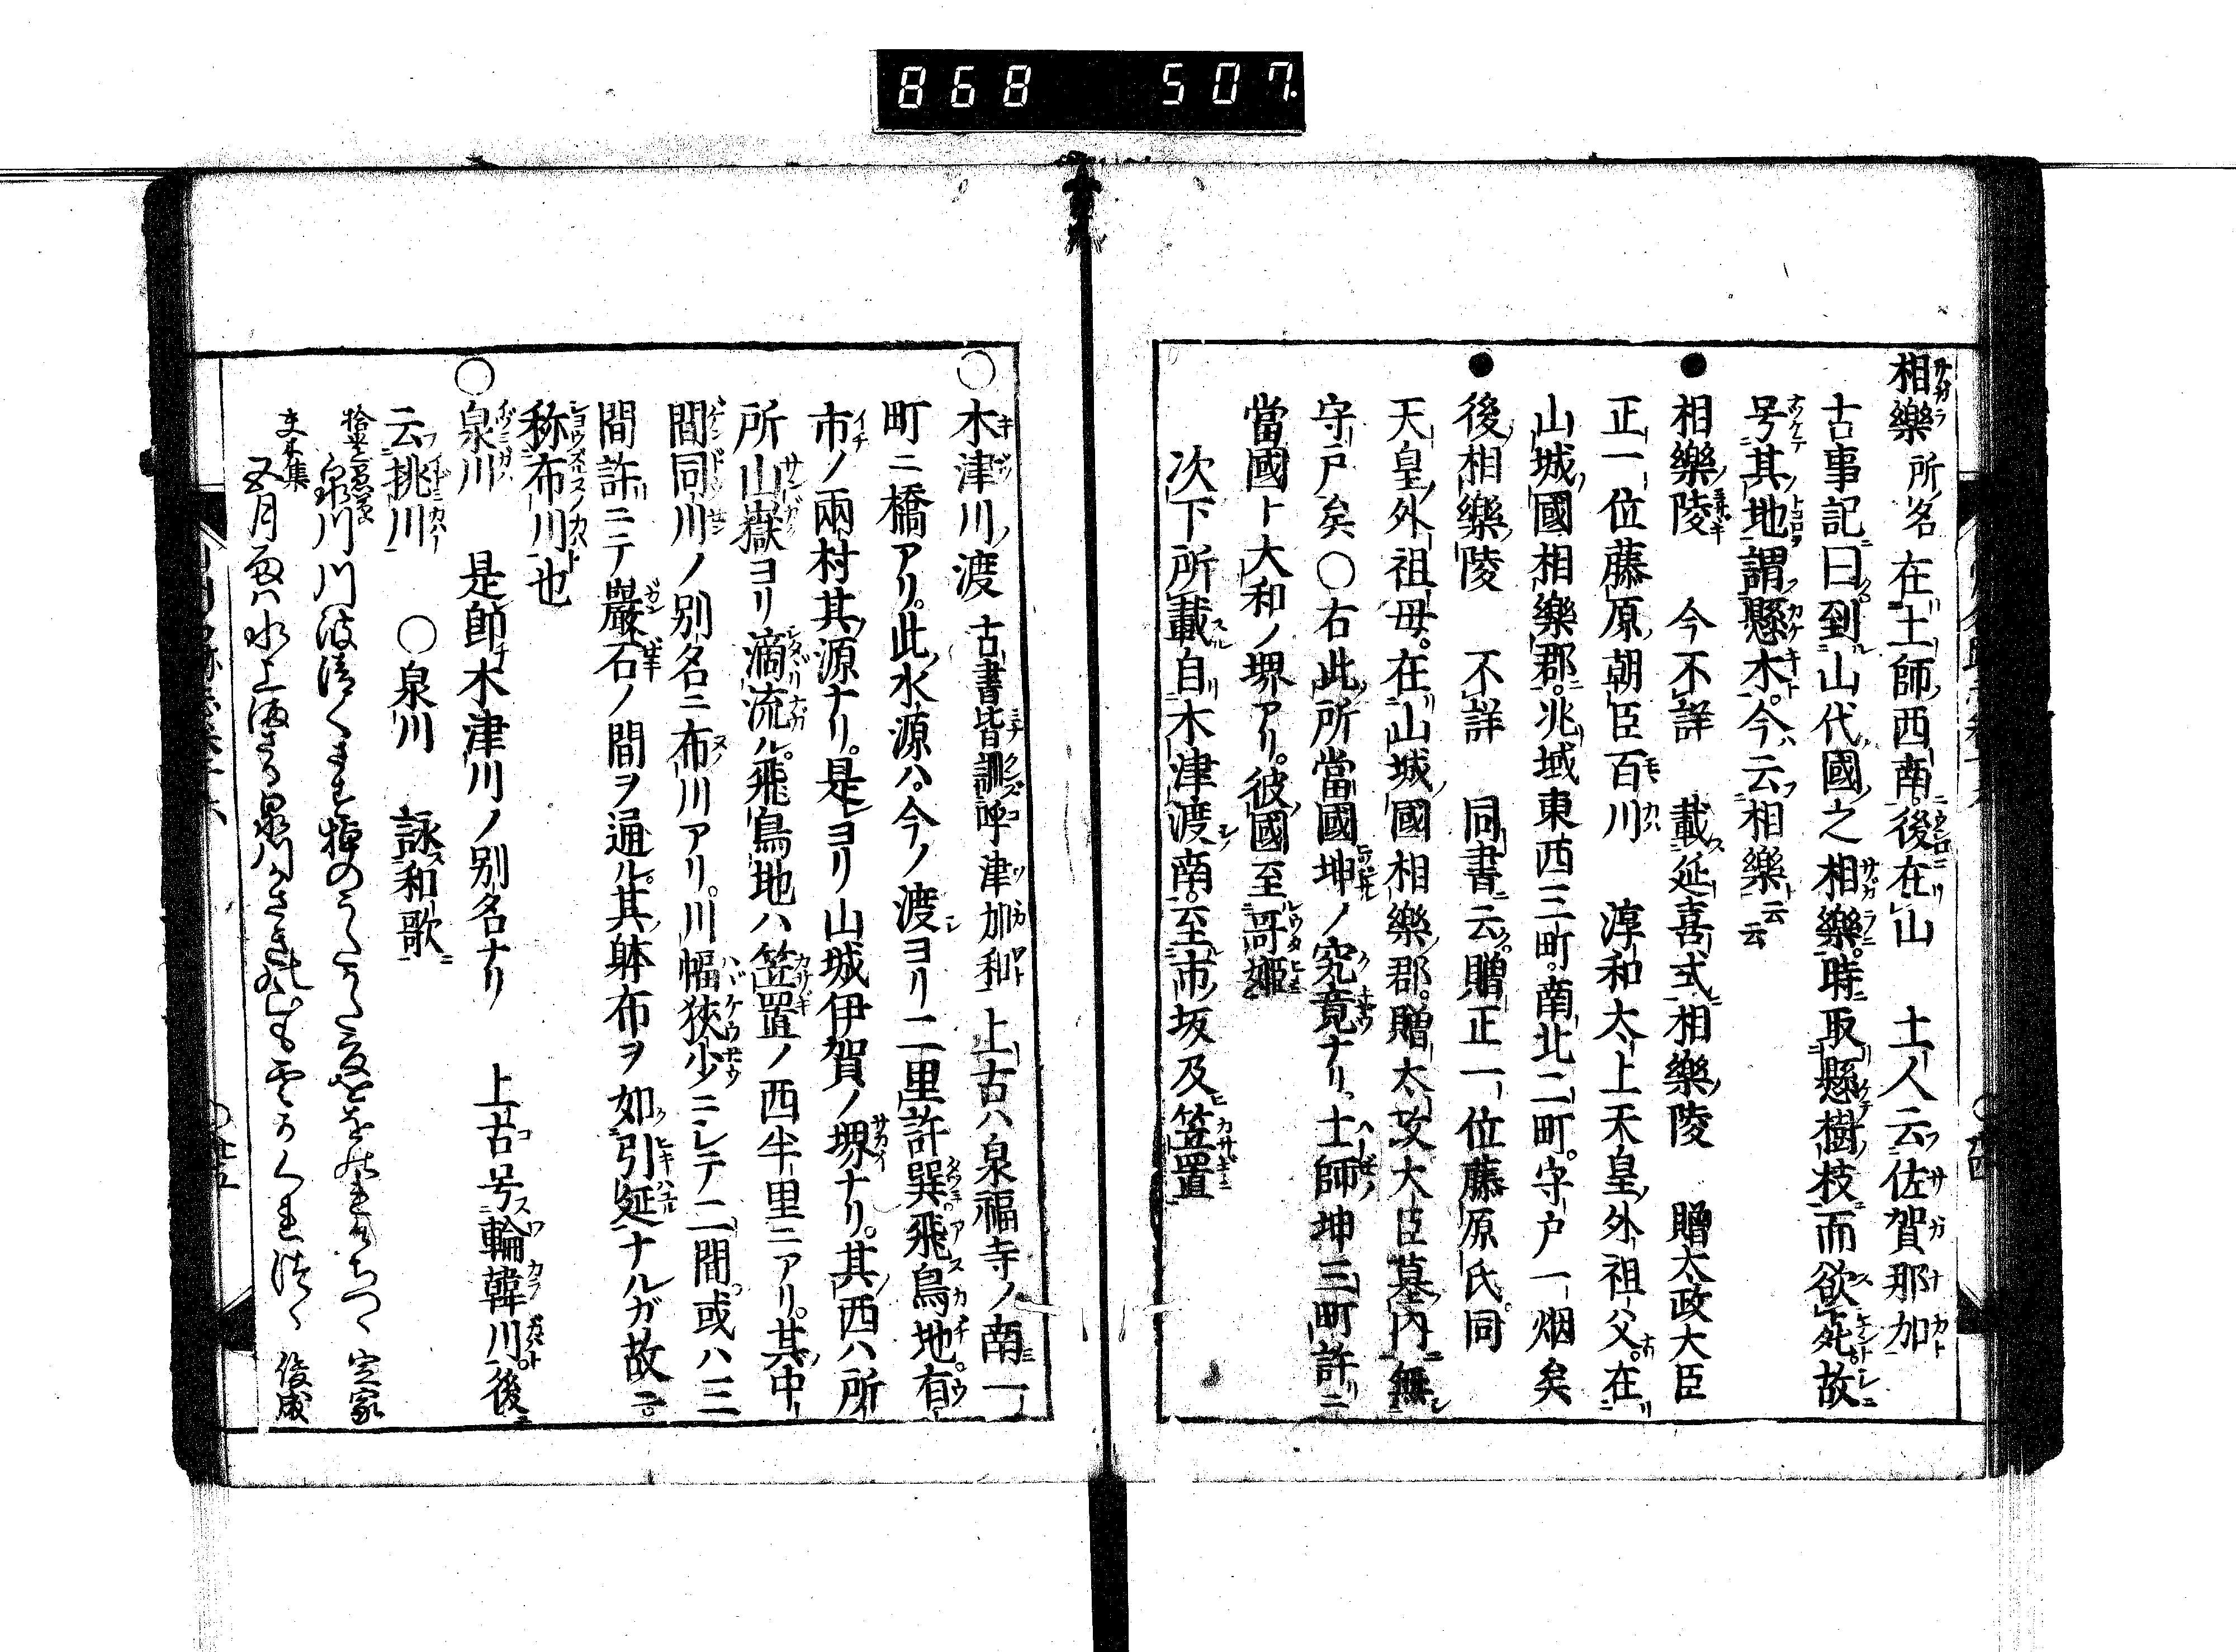 868 507.
相樂 所ノ名 在土師西南後在山 土人云佐賀那加
古事記曰到山代國之相樂時取懸樹枝而欲死故
号其地謂懸木今云相樂云云
●相樂陵 今不詳 載延喜式相樂陵 贈太政大臣
正一位藤原朝臣百川 淳和太上天皇外祖父在
山城國相樂郡兆域東西三町南北二町守戸一烟矣
●後相樂陵 不詳 同書云贈正一位藤原氏同
天皇外祖母在山城國相樂郡贈太政大臣墓内無
守戸矣○右此所當國坤ノ究竟ナリ土師坤三町許ニ
當國ト大和ノ堺アリ彼國至哥姫
次下所載自木津渡南至市坂及笠置
○木津川渡 古書皆訓呼津加和 上古ハ泉福寺ノ南一
町ニ橋アリ此水源ハ今ノ渡ヨリ二里許巽飛鳥地有
市ノ兩村其源ナリ是ヨリ山城伊賀ノ堺ナリ其西ハ所
所山嶽ヨリ滴流ル飛鳥地ハ笠置ノ西半里ニアリ其中
間同川ノ別名ニ布川アリ川幅狹少ニシテ二間或ハ三
間許ニテ巖石ノ間ヲ通ル其躰布ヲ如引延ナルガ故ニ
称布川也
○泉川 是即木津川ノ別名ナリ 上古号輪韓川後
云挑川 ○泉川 詠和歌
拾遺愚草 泉川川波清くさす棹のうたかた夏をおのれけちつヽ 定家
夫木集 五月雨ハ水上まさる泉川かさきの山も雲かくれつヽ 俊成